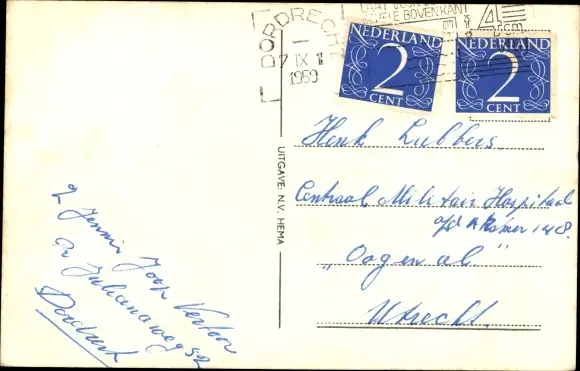 DORDRECHT
7 IX 1
1959
BOVENKANT
4
NEDERLAND
2
CENT
NEDERLAND
2
CENT
UITGAVE: N.V. HEMA
Henk Lubbers.
Centraal Militair Hospitaal
Kamer 148.
„Oogenal”
Utrecht.
Jennie Joop
Julianaweg 52
Dordrecht